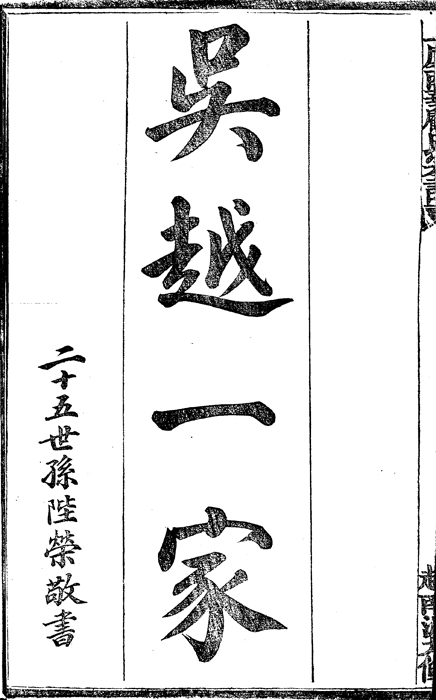 吳越一家
二十五世孫陛榮敬書